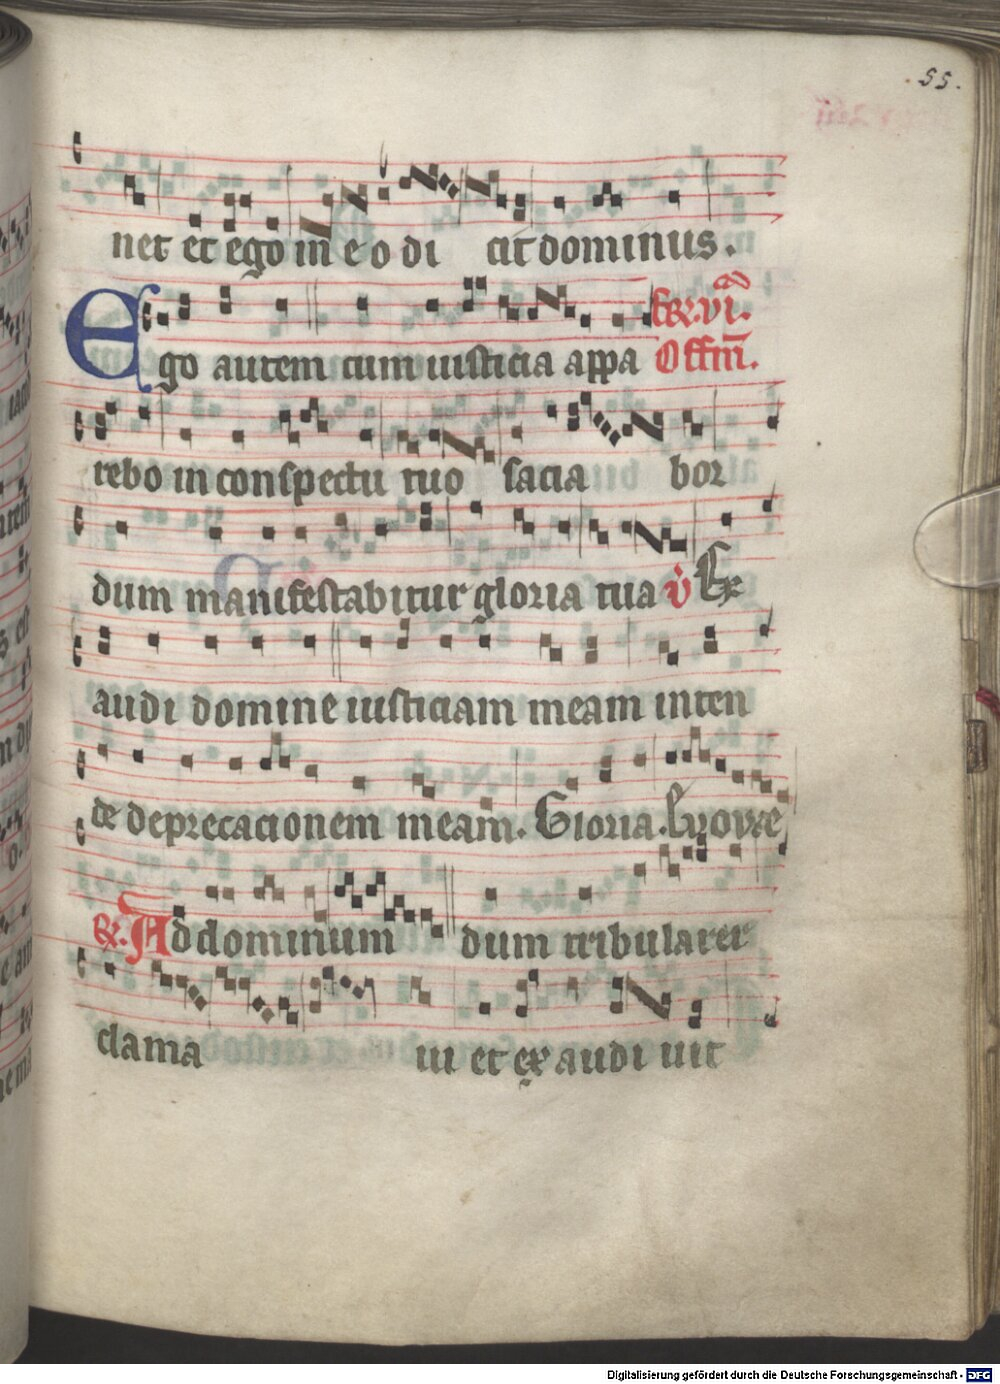 55.
net et ego in eo di cit dominus.
fer. vi.
Ego autem cum iusticia appa Offm̄.
rebo in conspectu tuo sacia bor
dum manifestabitur gloria tua v̇ Ex
audi domine iusticiam meam inten
de deprecacionem meam. Gloria. Euovae
R. Ad dominum dum tribularer
clama ui et ex audi uit
Digitalisierung gefördert durch die Deutsche Forschungsgemeinschaft - DFG